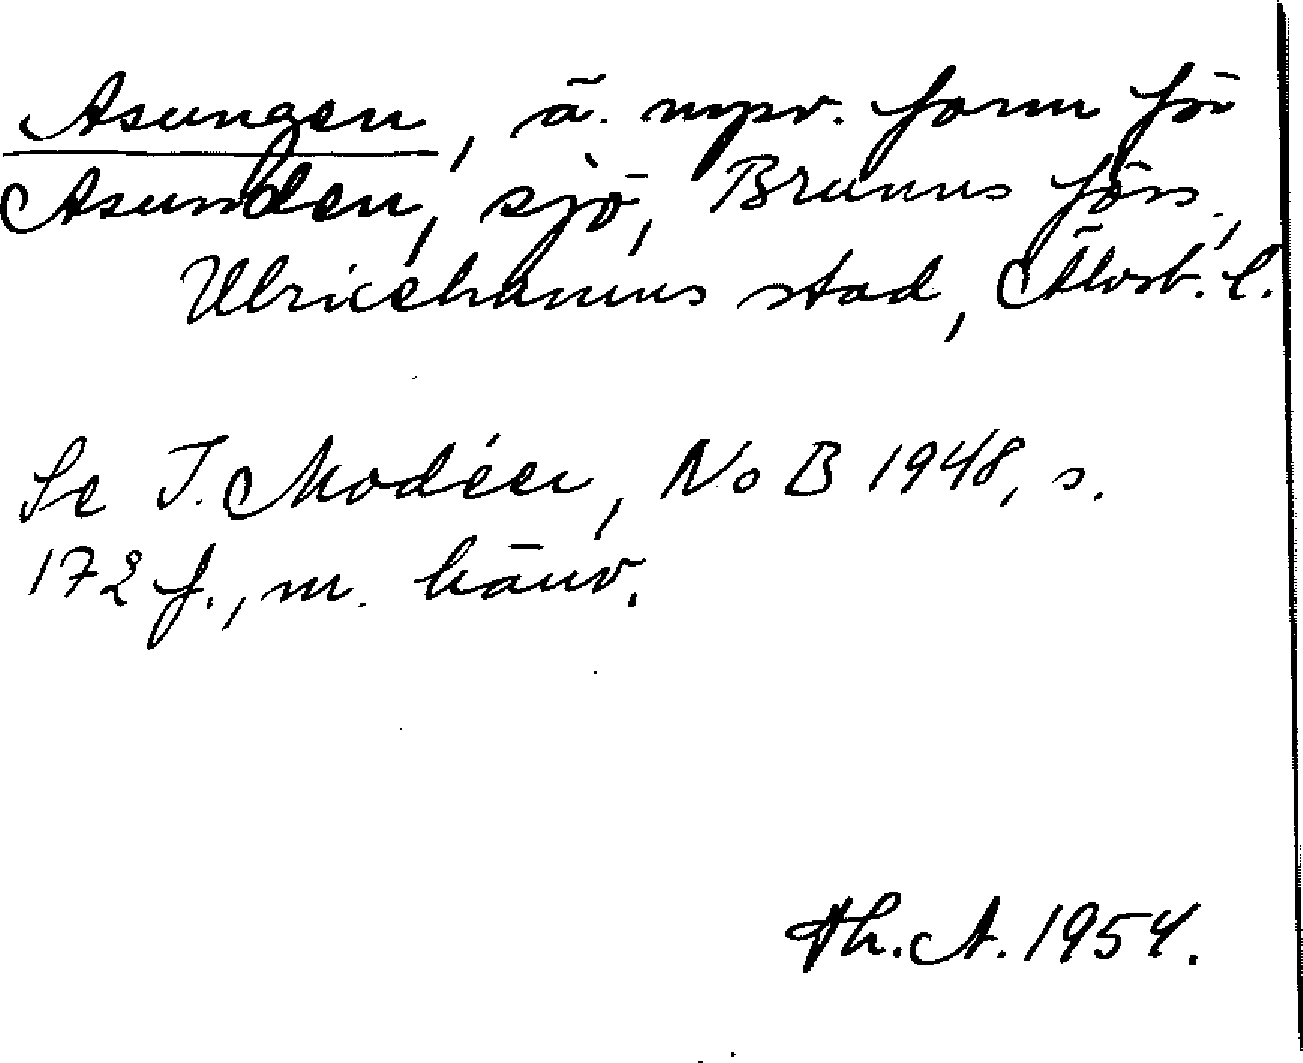 Asungen, ä. uppr. form för
Asunden, sjö, Brunns förs.,
Ulricehamns stad, Älvsb. l.
Se I. Modéer, NoB 1948, s.
172 f., m. hänv.
Th. A. 1954.